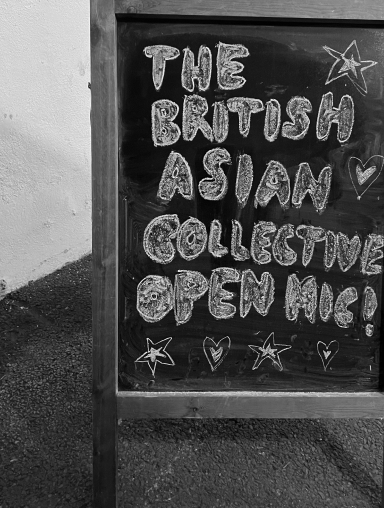 THE
BRITISH
ASIAN
COLLECTIVE
OPEN MIC!